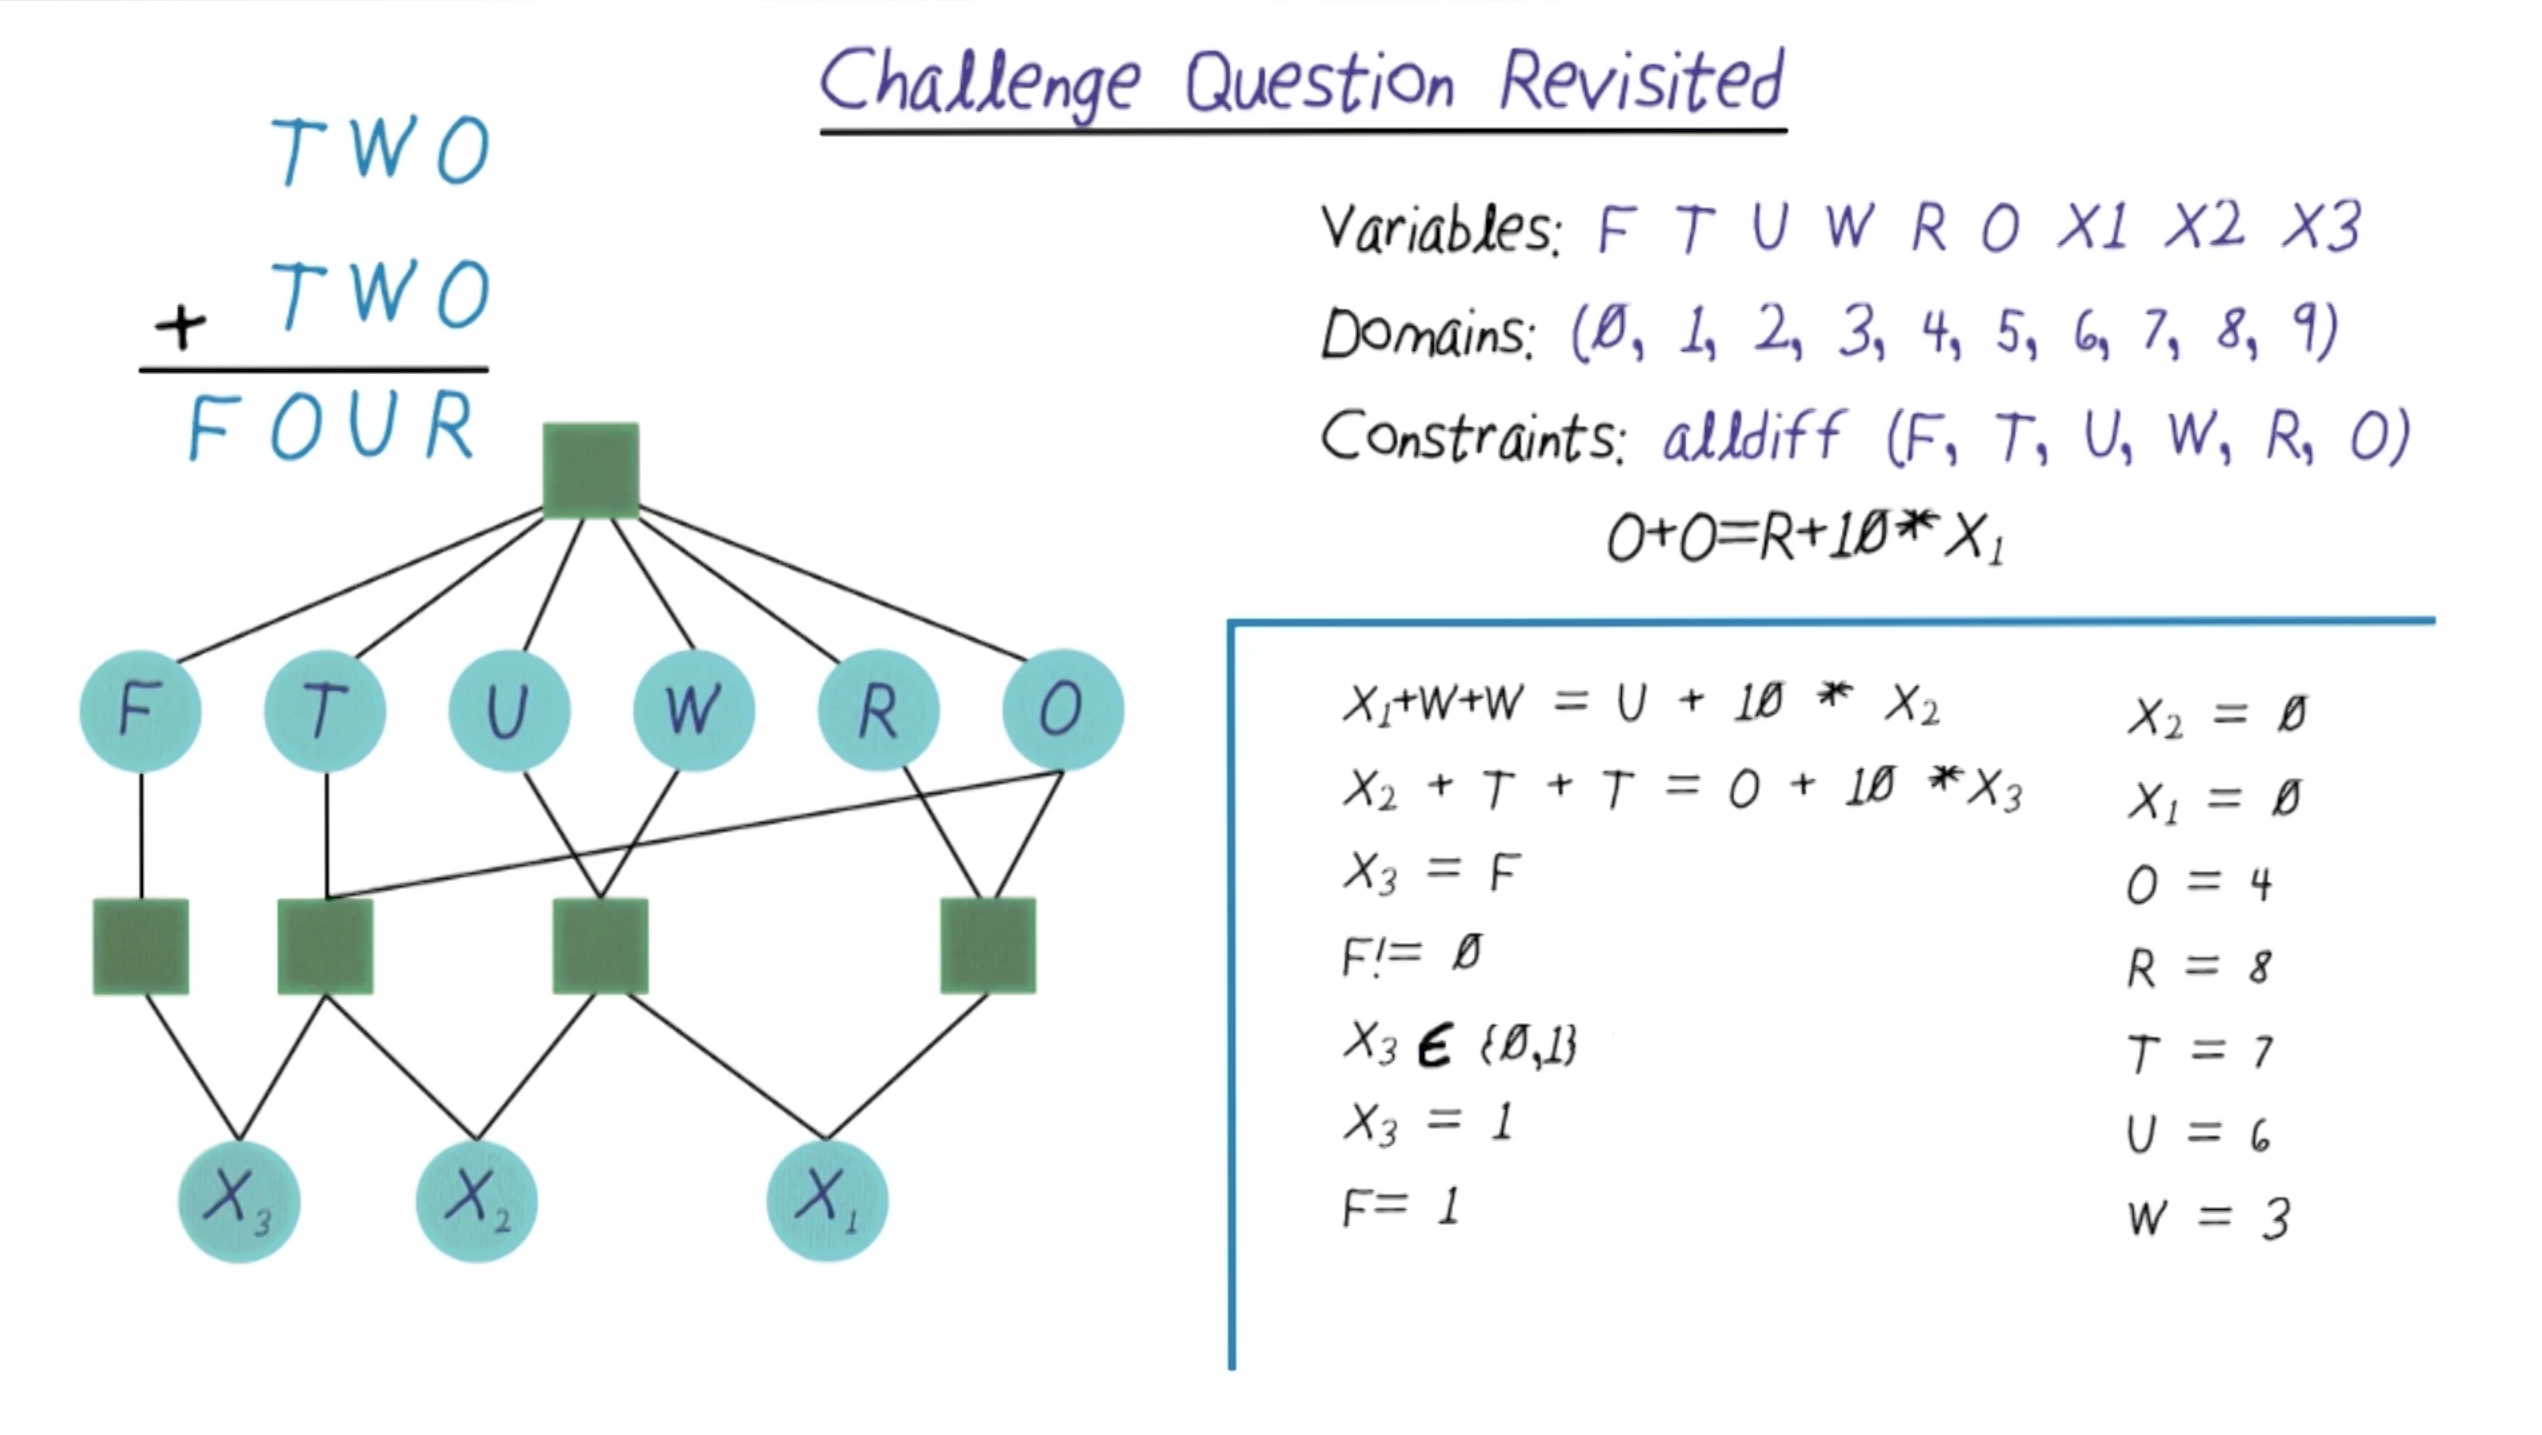 Challenge Question Revisited
TWO
TWO
+
FOUR
Variables: F T U W R O X1 X2 X3
Domains: (Ø, 1, 2, 3, 4, 5, 6, 7, 8, 9)
Constraints: alldiff (F, T, U, W, R, O)
O+O=R+1Ø*X₁
F T U W R O
X₃ X₂ X₁
X₁+W+W = U + 1Ø * X₂
X₂ + T + T = O + 1Ø *X₃
X₃ = F
F!= Ø
X₃ ∈ {Ø,1}
X₃ = 1
F= 1
X₂ = Ø
X₁ = Ø
O = 4
R = 8
T = 7
U = 6
W = 3